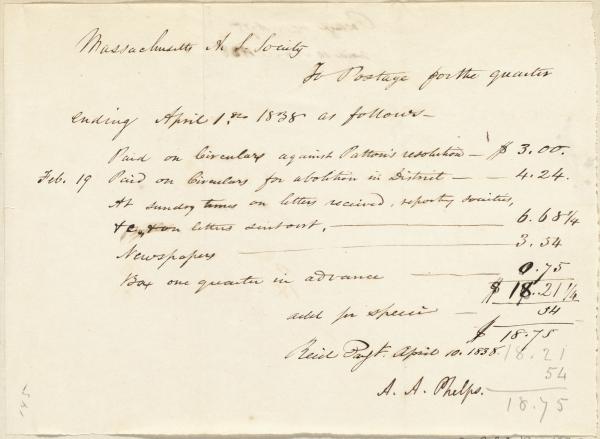 Massachusetts A. S. Society
To Postage for the quarter
ending April 1st 1838 as follows—
Paid on Circulars against Patton's resolution — $ 3.00.
Feb. 19 Paid on Circulars for abolition in District — — 4.24.
At sundry times on letters received, reporting societies,
&c, & on letters sent out, — 6.68 1/4
Newspapers — 3.54
Box one quarter in advance — 0.75
$ 18.21 1/4
add for specie — 54
$ 18.75
Recd Payt. April 10. 1838.
18.21
54
18.75
A. A. Phelps.